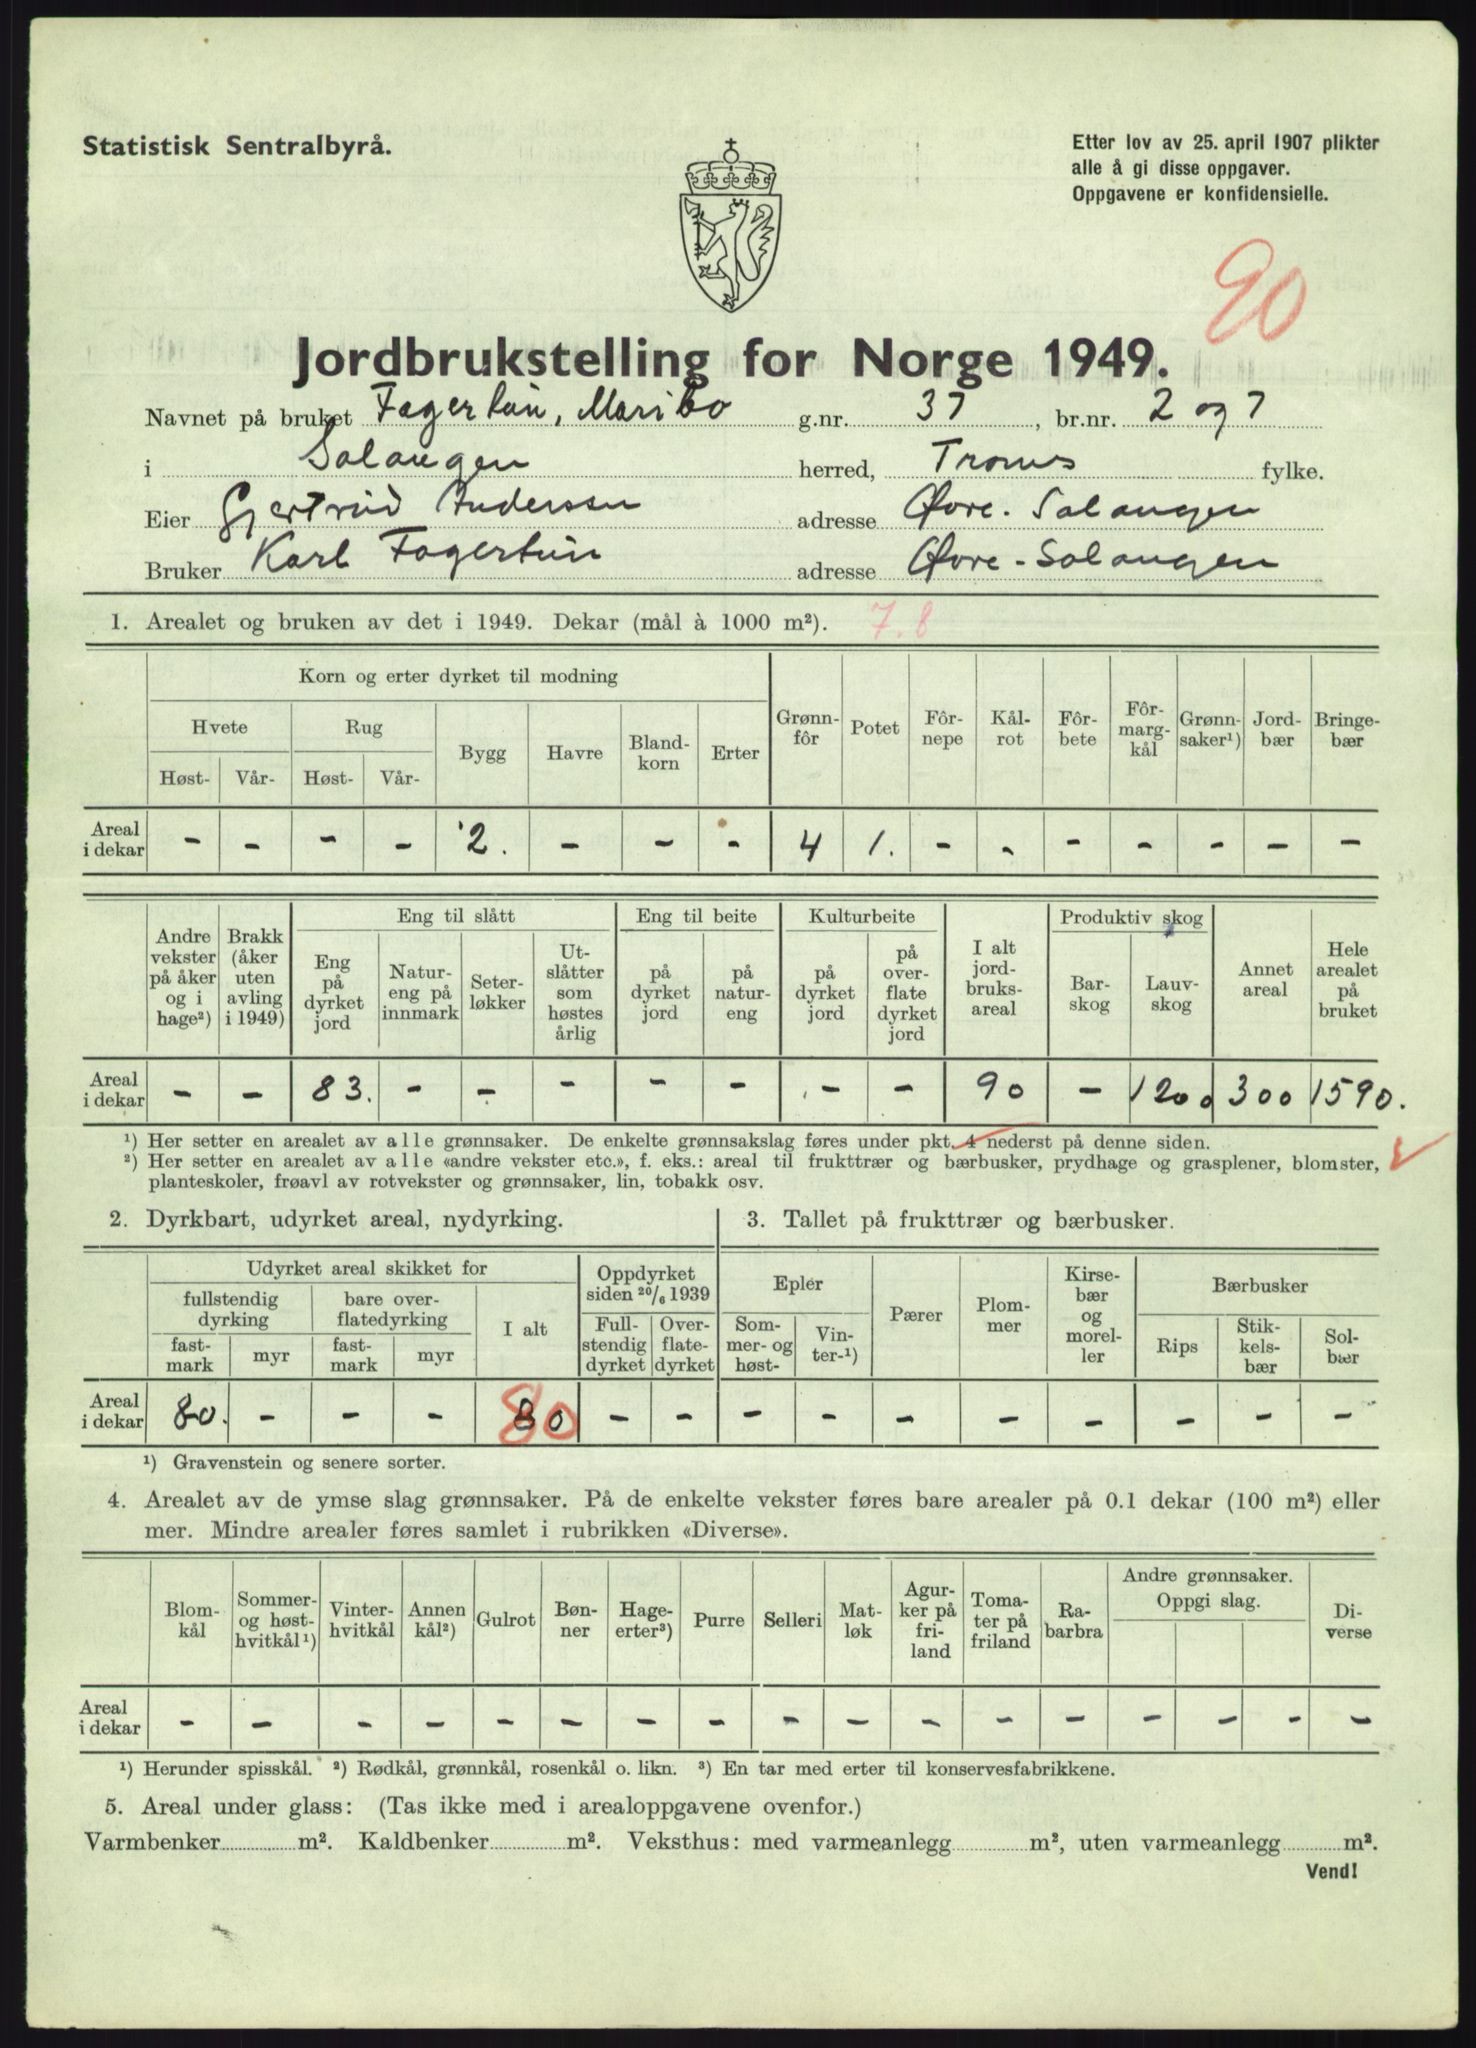 Statistisk Sentralbyrå.
Etter lov av 25. april 1907 plikter
alle å gi disse oppgaver.
Oppgavene er konfidensielle.
90
Jordbrukstelling for Norge 1949.
Navnet på bruket Fagertun, Maribo g.nr. 37, br.nr. 2 og 7
i Salangen herred, Troms fylke.
Eier Gjertrud Anderssen adresse Øvre-Salangen
Bruker Karl Fagertun adresse Øvre-Salangen
1. Arealet og bruken av det i 1949. Dekar (mål à 1000 m²). 7.8
Korn og erter dyrket til modning
Hvete Rug Bygg Havre Bland-korn Erter Grønn-fôr Potet Fôr-nepe Kål-rot Fôr-bete Fôr-marg-kål Grønn-saker¹) Jord-bær Bringe-bær
Høst- Vår- Høst- Vår-
Areal i dekar - - - - 2. - - - 4 1. - - - - - - -
Andre vekster på åker og i hage²) Brakk (åker uten avling i 1949) Eng til slått Eng til beite Kulturbeite I alt jord-bruks-areal Produktiv skog Annet areal Hele arealet på bruket
Eng på dyrket jord Natur-eng på innmark Seter-løkker Ut-slåtter som høstes årlig på dyrket jord på natur-eng på dyrket jord på over-flate dyrket jord Bar-skog Lauv-skog
Areal i dekar - - 83. - - - - - - - 90 - 1200 300 1590.
¹) Her setter en arealet av alle grønnsaker. De enkelte grønnsakslag føres under pkt. 4 nederst på denne siden.
²) Her setter en arealet av alle «andre vekster etc.», f. eks.: areal til frukttrær og bærbusker, prydhage og grasplener, blomster,
planteskoler, frøavl av rotvekster og grønnsaker, lin, tobakk osv.
2. Dyrkbart, udyrket areal, nydyrking.
Udyrket areal skikket for Oppdyrket siden 20/6 1939
fullstendig dyrking bare over-flatedyrking I alt Full-stendig dyrket Over-flate-dyrket
fast-mark myr fast-mark myr
Areal i dekar 80. - - - 80 80 - -
3. Tallet på frukttrær og bærbusker.
Epler Pærer Plom-mer Kirse-bær og morel-ler Bærbusker
Som-mer- og høst- Vin-ter-¹) Rips Stik-kels-bær Sol-bær
- - - - - - - -
¹) Gravenstein og senere sorter.
4. Arealet av de ymse slag grønnsaker. På de enkelte vekster føres bare arealer på 0.1 dekar (100 m²) eller
mer. Mindre arealer føres samlet i rubrikken «Diverse».
Blom-kål Sommer- og høst-hvitkål¹) Vinter-hvitkål Annen kål²) Gulrot Bøn-ner Hage-erter³) Purre Selleri Mat-løk Agur-ker på fri-land Toma-ter på friland Ra-barbra Andre grønnsaker. Oppgi slag. Di-verse
Areal i dekar - - - - - - - - - - - - - - - - -
¹) Herunder spisskål. ²) Rødkål, grønnkål, rosenkål o. likn. ³) En tar med erter til konservesfabrikkene.
5. Areal under glass: (Tas ikke med i arealoppgavene ovenfor.)
Varmbenker m². Kaldbenker m². Veksthus: med varmeanlegg m², uten varmeanlegg m².
Vend!